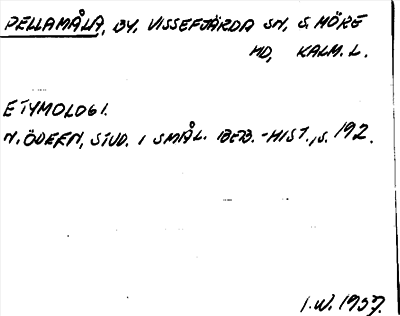 PELLAMÅLA, BY, VISSEFJÄRDA SN, S. MÖRE
HD, KALM. L.
ETYMOLOGI.
N. ÖDEEN, STUD. I SMÅL. BEB.-HIST., S. 192.
I.W. 1957.